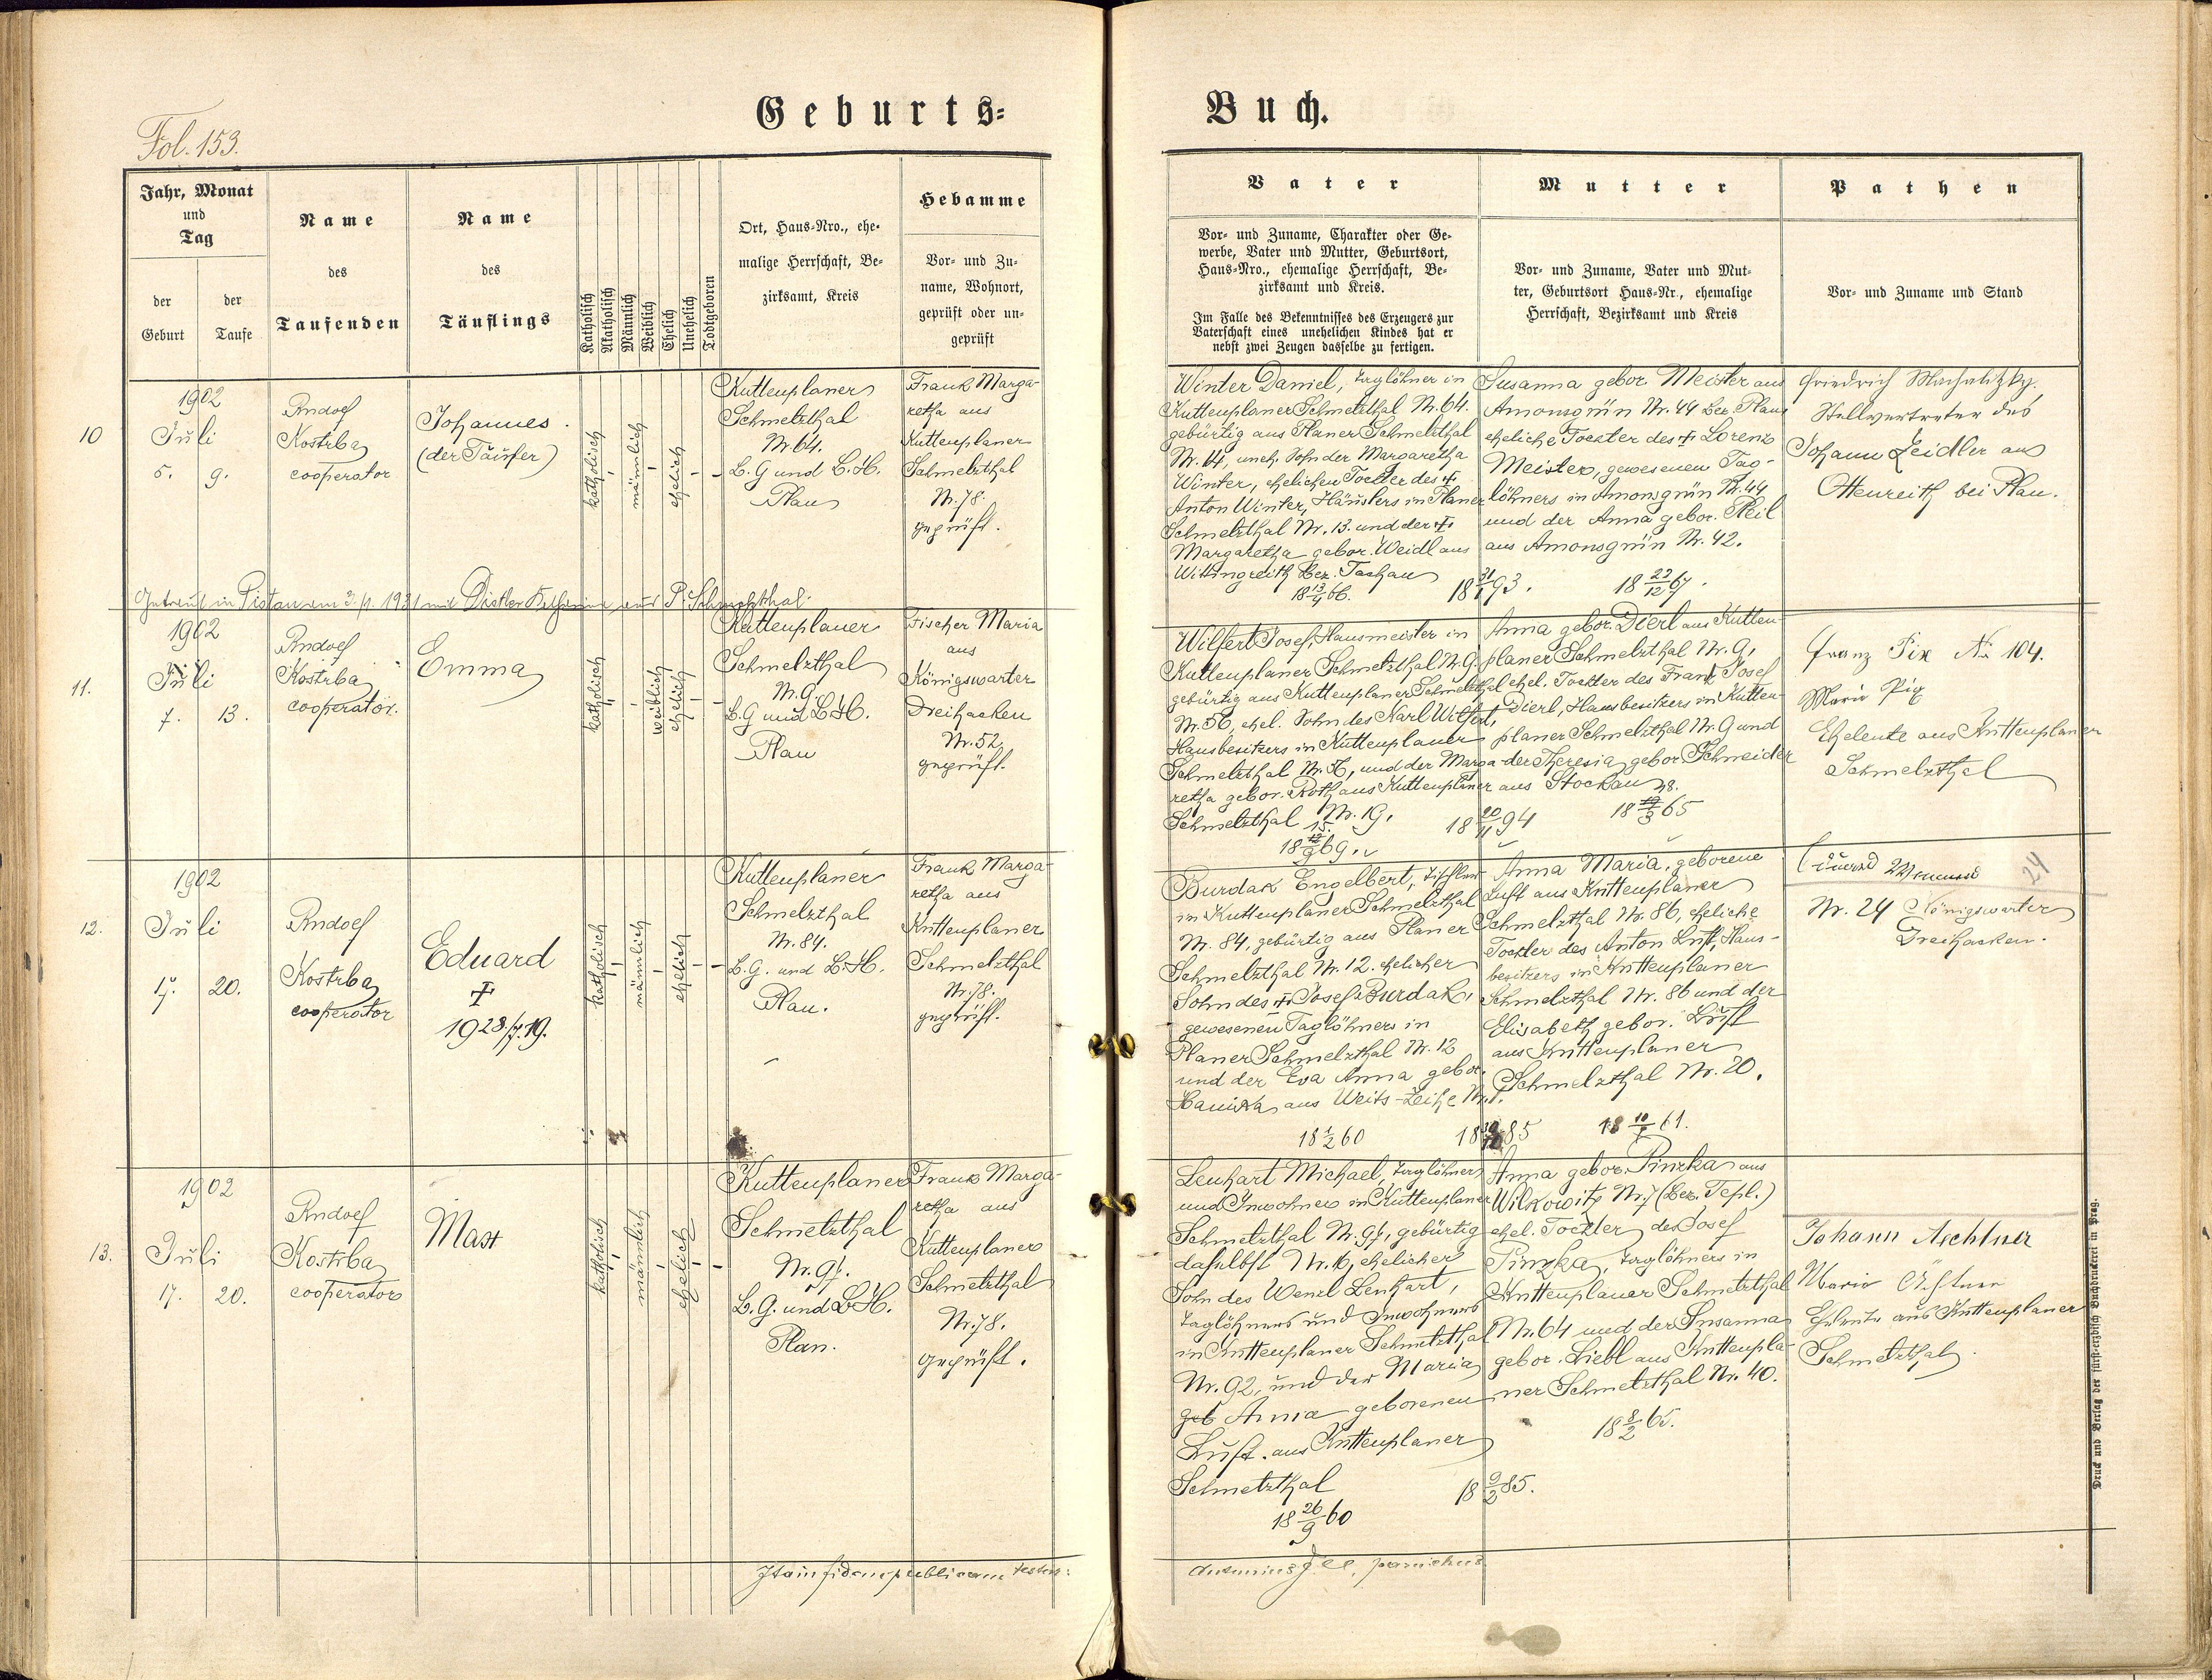 Fol. 153.
Geburts-
Buch.
Jahr, Monat
und
Tag
der
Geburt
der
Taufe
Name
des
Taufenden
Name
des
Täuflings
Katholisch
Akatholisch
Männlich
Weiblich
Ehelich
Unehelich
Todtgeboren
Ort, Haus-Nro., ehe-
malige Herrschaft, Be-
zirksamt, Kreis
Hebamme
Vor- und Zu-
name, Wohnort,
geprüft oder un-
geprüft
Vater
Vor- und Zuname, Charakter oder Ge-
werbe, Vater und Mutter, Geburtsort,
Haus-Nro., ehemalige Herrschaft, Be-
zirksamt und Kreis.
Im Falle des Bekenntnisses des Erzeugers zur
Vaterschaft eines unehelichen Kindes hat er
nebst zwei Zeugen dasselbe zu fertigen.
Mutter
Vor- und Zuname, Vater und Mut-
ter, Geburtsort Haus-Nr., ehemalige
Herrschaft, Bezirksamt und Kreis
Pathen
Vor- und Zuname und Stand
10
1902
Juli
5. 9.
Rudolf
Kostrba
cooperator
Johannes.
(der Täufer)
katholisch
männlich
ehelich
Kuttenplaner
Schmelzthal
Nr. 64.
B. G und B. H.
Plan
Frank Marga-
retha aus
Kuttenplaner
Schmelzthal
Nr. 78.
geprüft.
Winter Daniel, Taglöhner in
Kuttenplaner Schmelzthal Nr. 64.
gebürtig aus Planer Schmelzthal
Nr. 14, uneh. Sohn der Margaretha
Winter, ehelichen Tochter des †
Anton Winter, Häuslers in Planer
Schmelzthal Nr. 13. und der †
Margaretha gebor. Weidl aus
Wittingreith Bez. Tachau
18 13/4 66.
18 31/1 93.
Susanna gebor. Meister aus
Amonsgrün Nr. 44 Bez. Plan
eheliche Tochter des † Lorenz
Meister, gewesenen Tag-
löhners in Amonsgrün Nr. 44
und der Anna gebor. Pleil
aus Amonsgrün Nr. 42.
18 22/12 67.
Friedrich Machalitzky.
Stellvertreter des
Johann Zeidler aus
Ottenreith bei Plan.
Getraut in Pistau am 3./1. 1931 mit Katharina aus P. Schmelzthal.
11.
1902
Juli
7. 13.
Rudolf
Kostrba
cooperator.
Emma
katholisch
weiblich
ehelich
Kuttenplaner
Schmelzthal
Nr. 9.
B. G und B. H.
Plan
Fischer Maria
aus
Königswarter
Dreihacken
Nr. 52
geprüft.
Wilfert Josef, Hausmeister in
Kuttenplaner Schmelzthal Nr. 9.
gebürtig aus Kuttenplaner Schmelzthal
Nr. 56, ehel. Sohn des Karl Wilfert,
Hausbesitzers in Kuttenplaner
Schmelzthal Nr. 56, und der Marga-
retha gebor. Roth aus Kuttenplaner
Schmelzthal Nr. 19.
15.
18 /9 69.
18 20/11 94
Anna gebor. Dierl aus Kutten-
planer Schmelzthal Nr. 9,
ehel. Tochter des Franz Josef
Dierl, Hausbesitzers in Kutten-
planer Schmelzthal Nr. 9 und
der Theresia gebor. Schneider
aus Stockau
28.
18 /3 65
Franz Pix Nr 104.
Maria Pix
Eheleute aus Kuttenplaner
Schmelzthal
12.
1902
Juli
17. 20.
Rudolf
Kostrba
cooperator
Eduard
†
1928./7. 19.
katholisch
männlich
ehelich
Kuttenplaner
Schmelzthal
Nr. 84.
B. G. und B. H.
Plan.
Frank Marga-
retha aus
Kuttenplaner
Schmelzthal
Nr. 78.
geprüft.
Burdak Engelbert, Tischler
in Kuttenplaner Schmelzthal
Nr. 84, gebürtig aus Planer
Schmelzthal Nr. 12. ehelicher
Sohn des † Josef Burdak,
gewesenen Taglöhners in
Planer Schmelzthal Nr. 12
und der Eva Anna gebor.
Hanika aus Weits-Zeche Nr. 1.
18 1/2 60
85
Anna Maria, geborene
Luft aus Kuttenplaner
Schmelzthal Nr. 86, eheliche
Tochter des Anton Luft, Haus-
besitzers in Kuttenplaner
Schmelzthal Nr. 86 und der
Elisabeth gebor. Luft
aus Kuttenplaner
Schmelzthal Nr. 20.
61.
Eduard
24
Nr. 24 Königswarter
Dreihacken.
13.
1902
Juli
17. 20.
Rudolf
Kostrba
cooperator
Max
katholisch
männlich
ehelich
Kuttenplaner
Schmelzthal
Nr. 97.
B. G. und B. H.
Plan.
Frank Marga-
retha aus
Kuttenplaner
Schmelzthal
Nr. 78.
geprüft.
Lenhart Michael, Taglöhner
und Inwohner in Kuttenplaner
Schmelzthal Nr. 97, gebürtig
daselbst Nr. 16, ehelicher
Sohn des Wenzl Lenhart,
Taglöhners und Inwohners
in Kuttenplaner Schmelzthal
Nr. 92, und der Maria
geb Anna geborenen
Luft aus Kuttenplaner
Schmelzthal
18 26/9 60
18 9/2 85.
Anna gebor. Pinzka aus
Wilkowitz Nr. 7 (Bez. Tepl.)
ehel. Tochter des Josef
Pinzka, Taglöhners in
Kuttenplaner Schmelzthal
Nr. 64 und der Susanna
gebor. Liebl aus Kuttenpla-
ner Schmelzthal Nr. 40.
18 8/2 65.
Johann Aechtner
Maria
Eheleute aus Kuttenplaner
Schmelzthal.
Ita in fidem publicam testor:
Antonius parochus.
Druck und Verlag der fürst-erzbisch Buchdruckerei in Prag.